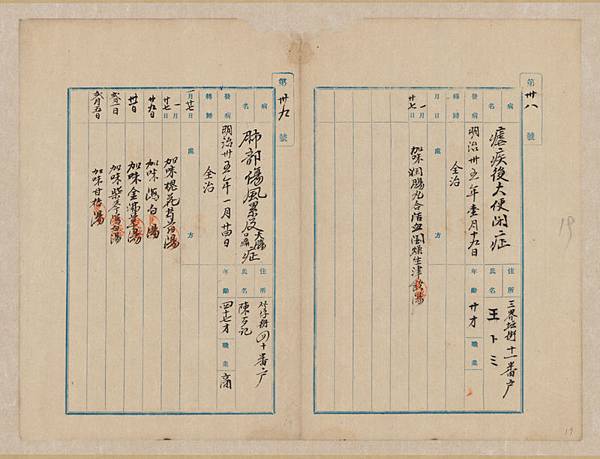 第卅八號
病名 瘧疾後大便閉症
住所 三界壇街十一番戶
氏名 王卜ミ
發病 明治卅五年壹月十五日
年齡 廿才
職業
轉歸 全治
月日 處方
一月廿七日 加味潤腸丸合活血潤燥生津飲湯
第卅九號
病名 肺部傷風累及大腸症
住所 四十番戶
氏名 陳
發病 明治卅五年一月廿四日
年齡 四十七才
職業 商
轉歸 全治
月日 處方
一月廿七日 加味槐花散湯
廿九日 加味瀉白湯
卅日 加味金沸草湯
加味柴苓瀉白湯
弍月五日 加味甘桔湯
19